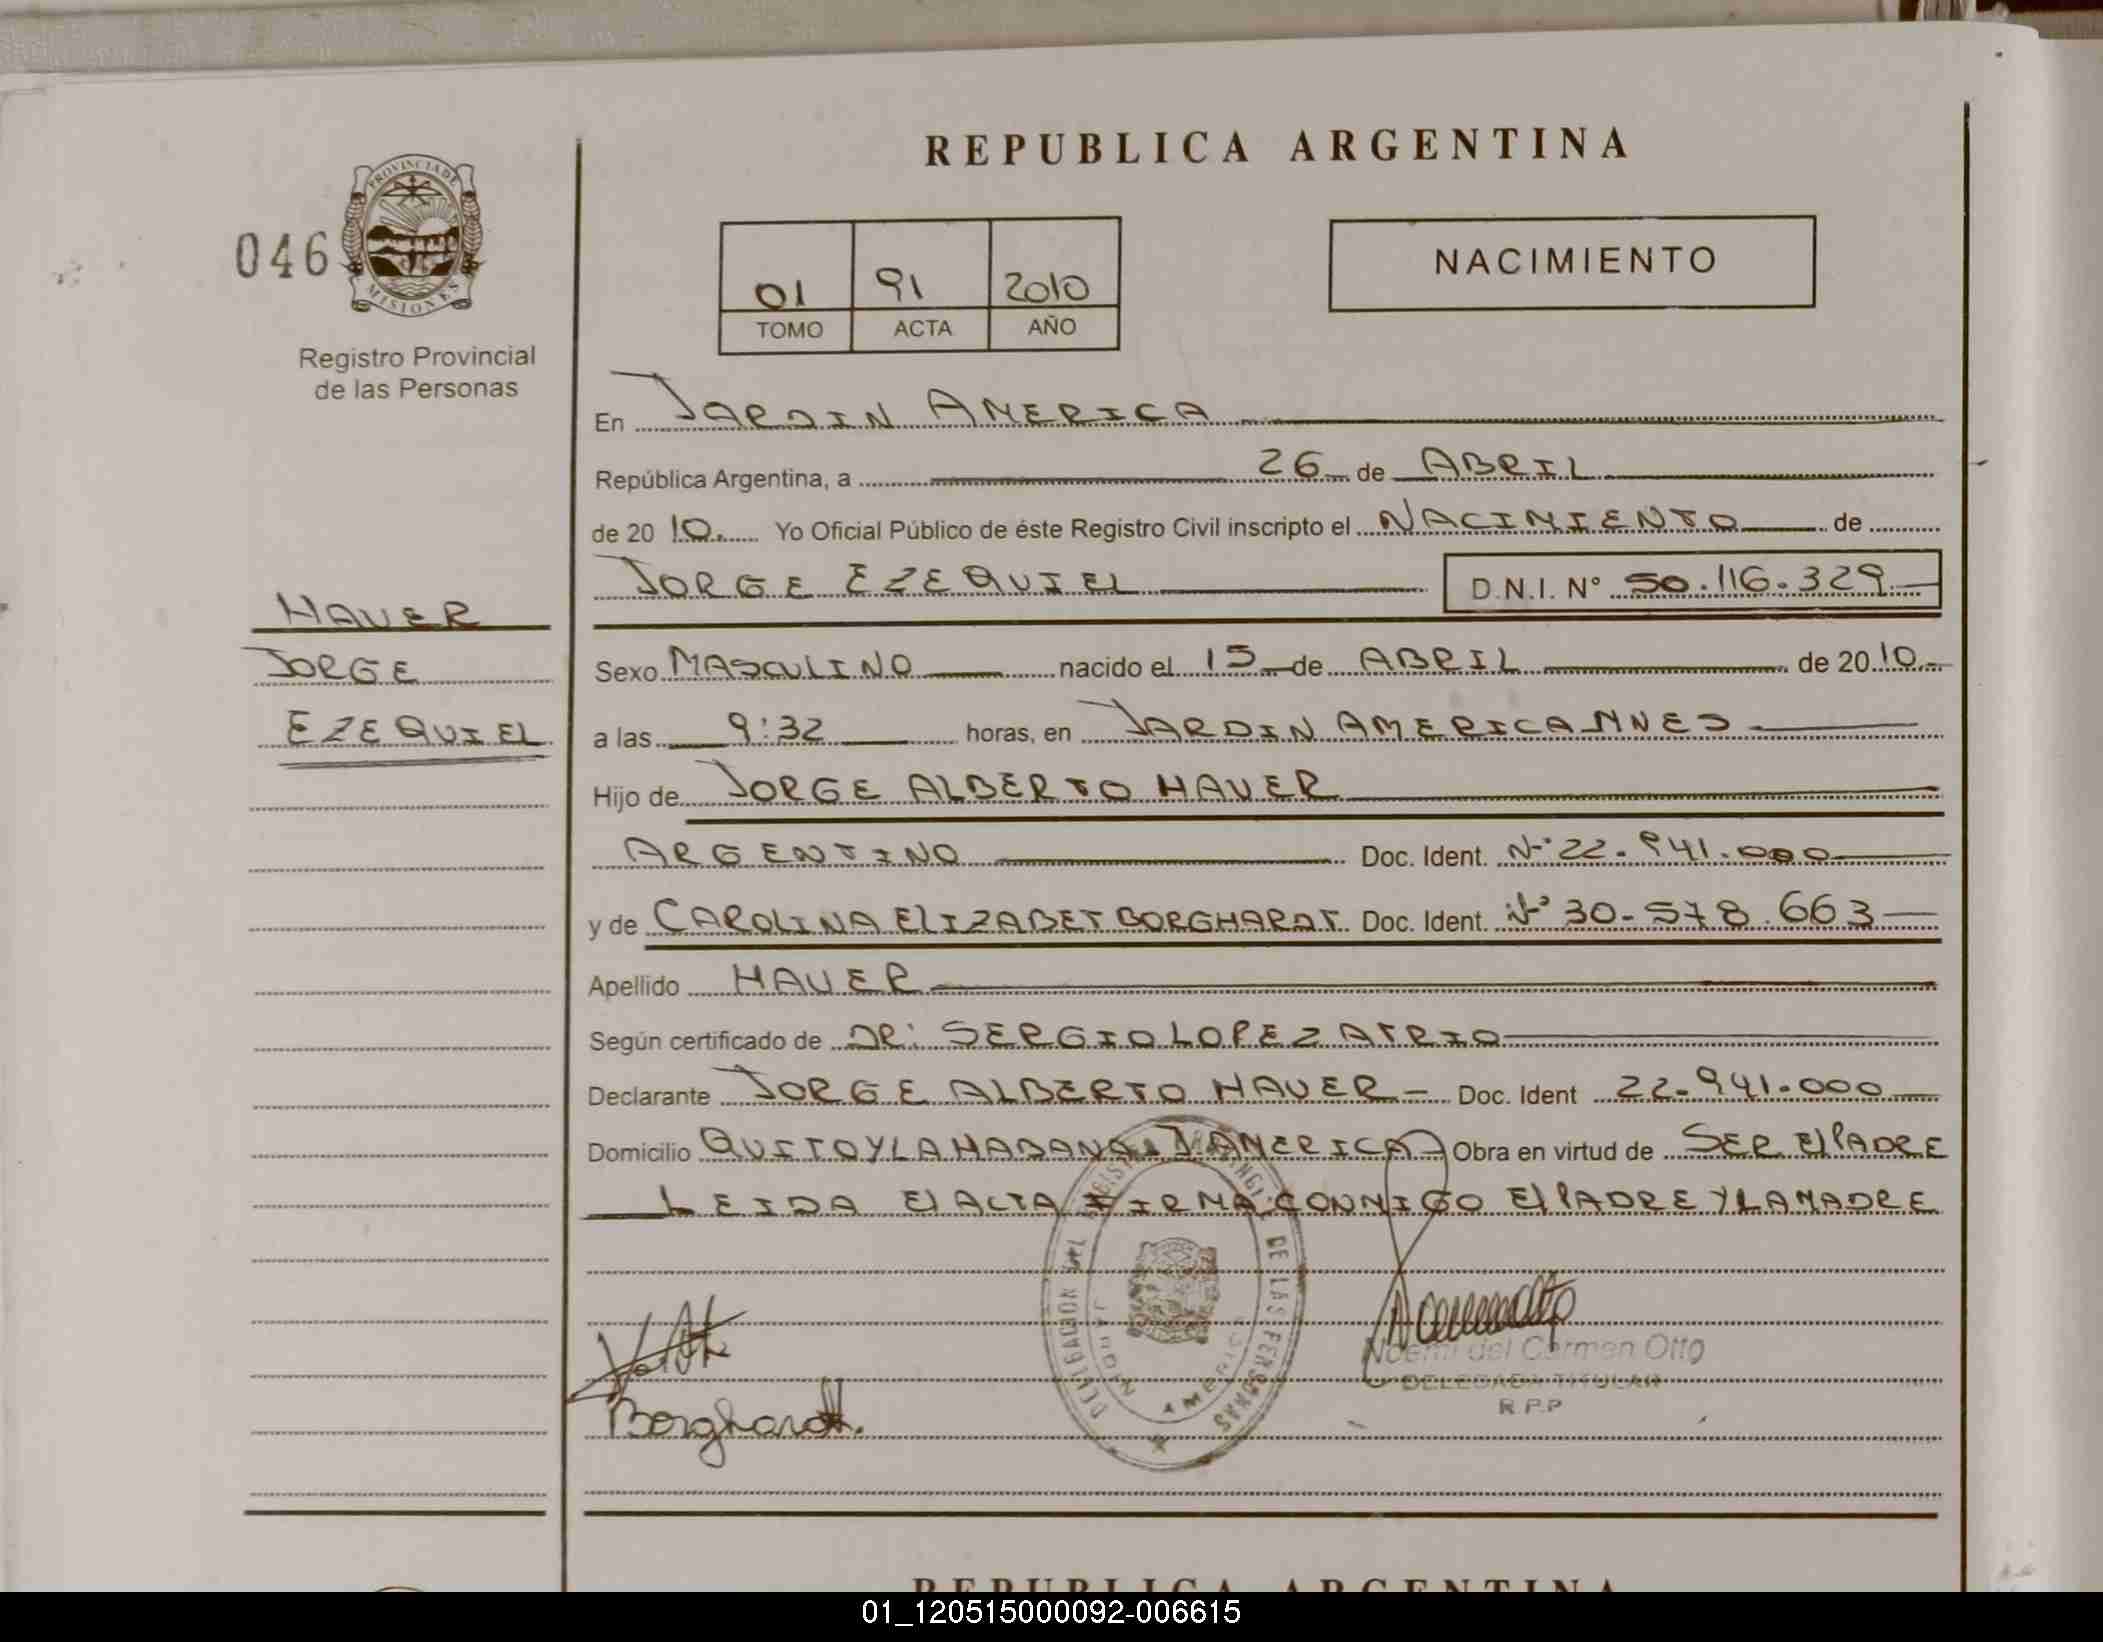 REPUBLICA ARGENTINA
046
PROVINCIA DE
MISIONES
Registro Provincial
de las Personas
01 91 2010
TOMO ACTA AÑO
NACIMIENTO
En JARDIN AMERICA
República Argentina, a 26 de ABRIL
de 2010. Yo Oficial Público de éste Registro Civil inscripto el NACIMIENTO de
JORGE EZEQUIEL D.N.I. N° 50.116.329
HAUER
JORGE
EZEQUIEL
Sexo MASCULINO nacido el 15 de ABRIL de 2010
a las 9:32 horas, en JARDIN AMERICA MNES
Hijo de JORGE ALBERTO HAUER
ARGENTINO Doc. Ident. N° 22.941.000
y de CAROLINA ELIZABET BORGHARDT Doc. Ident. N° 30.578.663
Apellido HAUER
Según certificado de DR: SERGIO LOPEZ ATRIO
Declarante JORGE ALBERTO HAUER Doc. Ident 22.941.000
Domicilio QUITO Y LA HABANA J. AMERICA Obra en virtud de SER El PADRE
LEIDA El ACTA FIRMA CONMIGO El PADRE Y LA MADRE
DELEGACION DE LAS PERSONAS
JARDIN AMERICA
Borghardt.
Noemi del Carmen Otto
DELEGADA TITULAR
R.P.P
REPUBLICA ARGENTINA
01_120515000092-006615